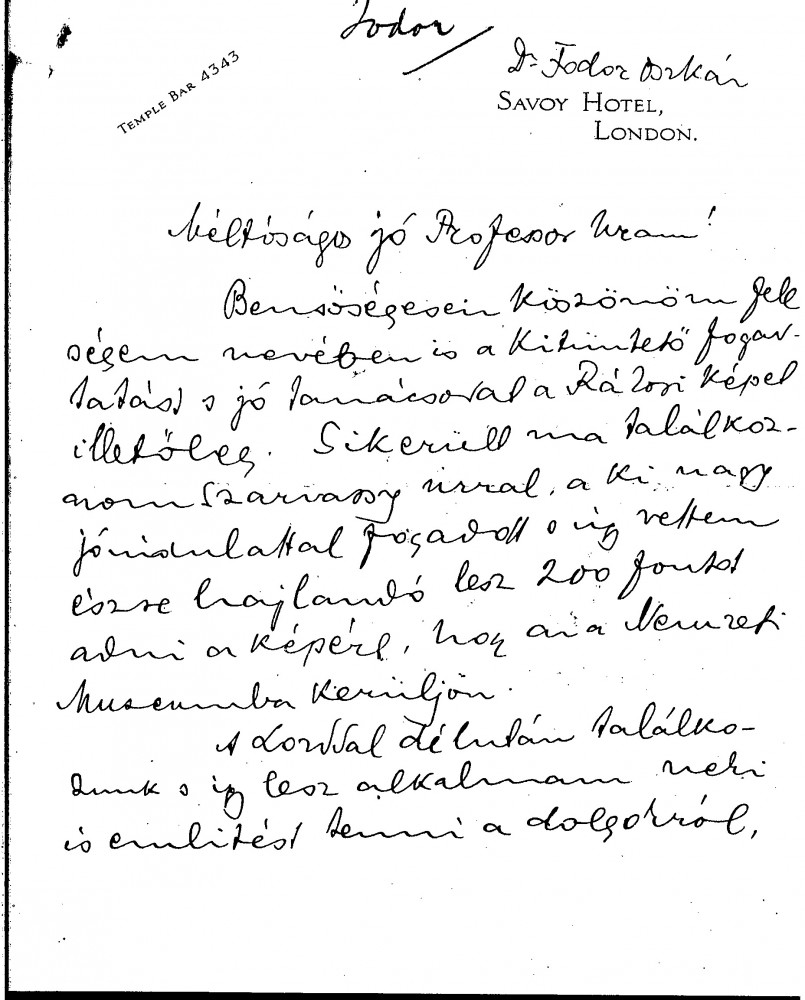 Fodor
TEMPLE BAR 4343
Dr Fodor Oszkár
SAVOY HOTEL,
LONDON.
Méltóságos jó Professor Uram!
Bensőségesen köszönöm fele
ségem nevében is a kitüntető fogad-
tatást s jó tanácsodat a képet
illetőleg. Sikerült ma találkoz-
nom Szarvassy úrral, a ki nagy
jóindulattal fogadott s úgy vettem
észre hajlandó lesz 200 fontot
adni a képért, hogy az a Nemzeti
Museumba kerüljön.
A Lorddal délután találko-
zunk s így lesz alkalmam neki
is említést tenni a dologról,